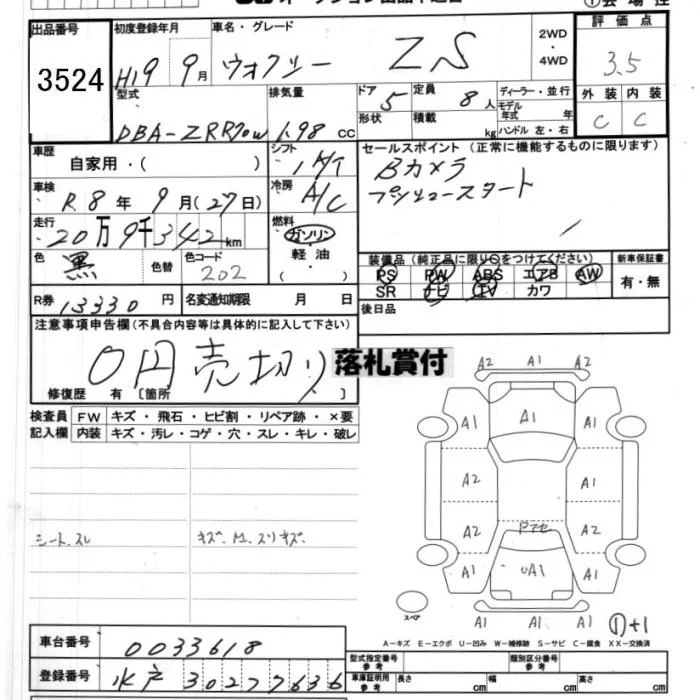 出品番号 3524
初度登録年月 H19年 9月
車名・グレード ヴォクシー ZS
2WD・4WD
評価点 3.5
型式 DBA-ZRR70W
排気量 1.98 cc
ドア 5
形状
定員 8人
積載 kg
ディーラー・並行
モデル年式 年
ハンドル 左・右
外装 内装
C C
車歴 自家用・( )
シフト IAT
セールスポイント(正常に機能するものに限ります)
Bカメラ
プッシュスタート
車検 R.8年 9月(27日)
冷房 A/C
走行 20万9千342km
燃料 ガソリン・軽油・( )
色 黒 色替
色コード 202
装備品(純正品に限り○をつけてください)
PS PW ABS エアB AW
SR ナビ TV カワ
新車保証書 有・無
R券 13330円
名変通知期限 月 日
後日品
注意事項申告欄(不具合内容等は具体的に記入して下さい)
0円売切り
落札賞付
修復歴 有 〔箇所 〕
検査員記入欄
FW キズ・飛石・ヒビ割・リペア跡・×要
内装 キズ・汚レ・コゲ・穴・スレ・キレ・破レ
シート、スレ
A2 A1 A2
A1 A1 A1
A2 A1
A2 A2
A1 UA1 A1
A1 A1 A1
スペア
①+1
A-キズ E-エクボ U-凹み W-補修跡 S-サビ C-腐食 XX-交換済
車台番号 0033618
登録番号 水戸 302 77636
型式指定番号 参考
類別区分番号 参考
車庫証明用 参考 長さ cm 幅 cm 高さ cm